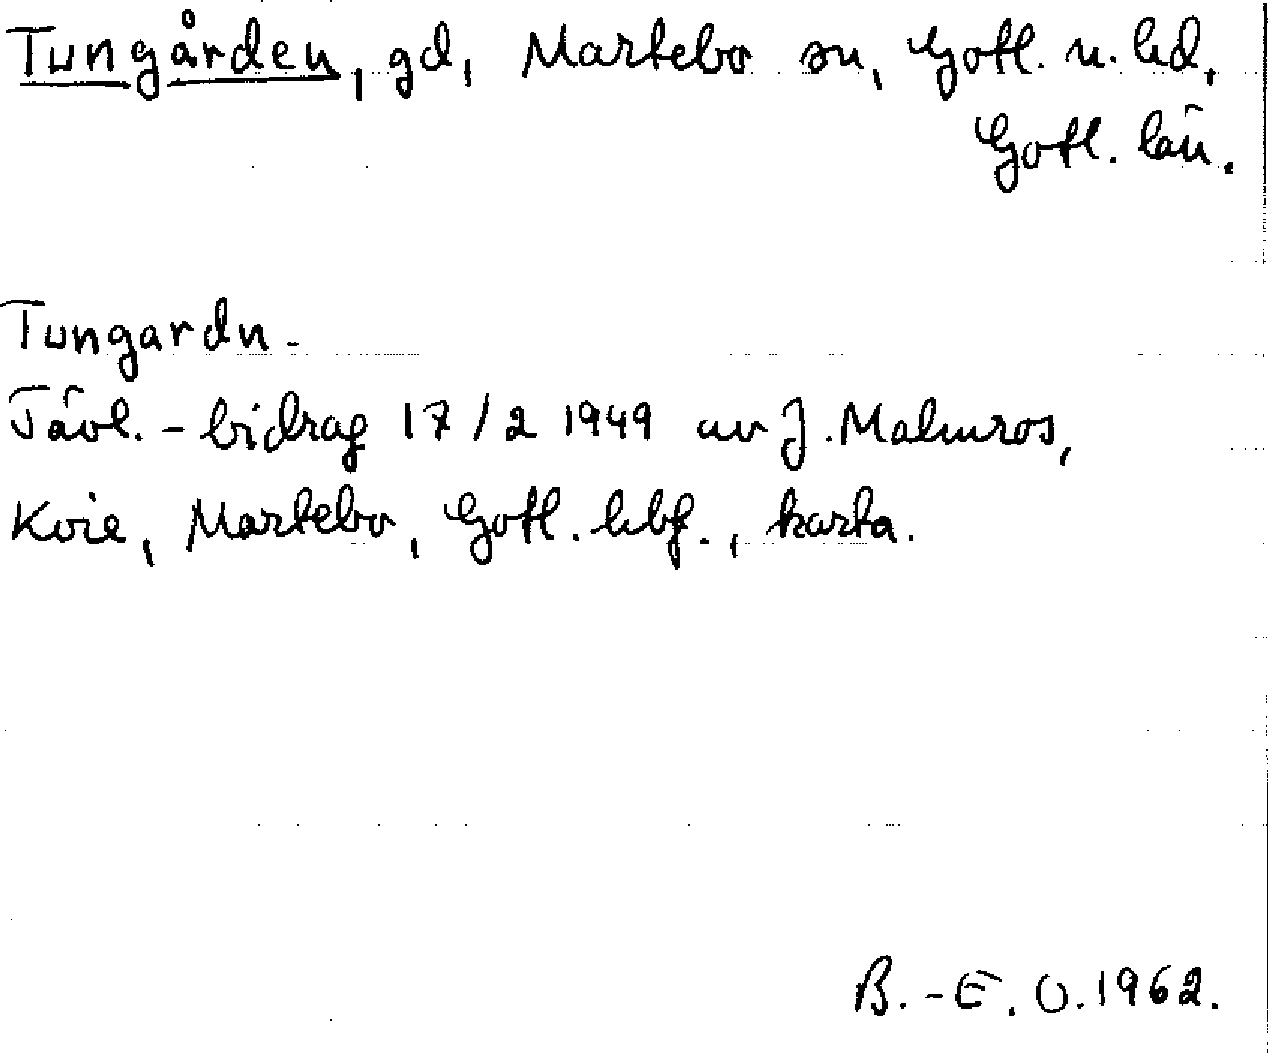 Tungården, gd, Martebo sn, Gotl. n. hd,
Gotl. län.
Tungardn -
Tävl. - bidrag 17/2 1949 av J. Malmros,
Kvie, Martebo, Gotl. hbf., karta.
B. - E. O. 1962.